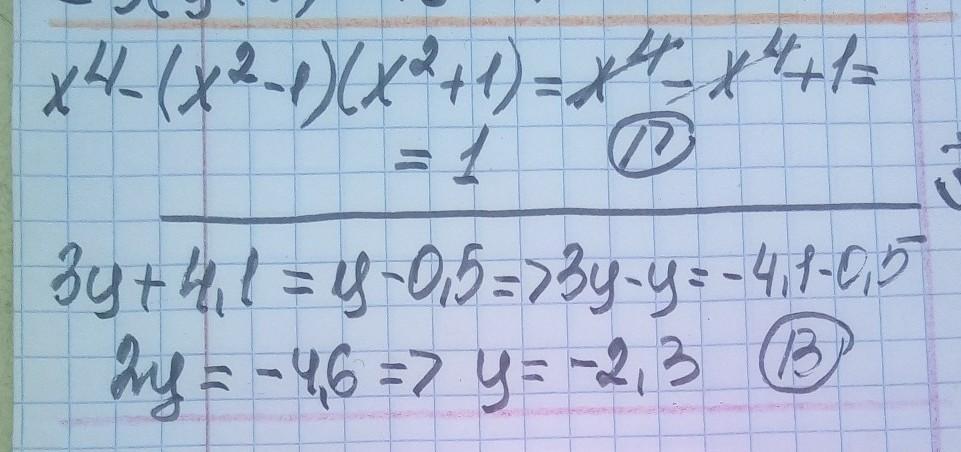 x⁴-(x²-1)(x²+1)=x⁴-x⁴+1=
=1
3y+4,1=y-0,5=>3y-y=-4,1-0,5
2y=-4,6=> y=-2,3